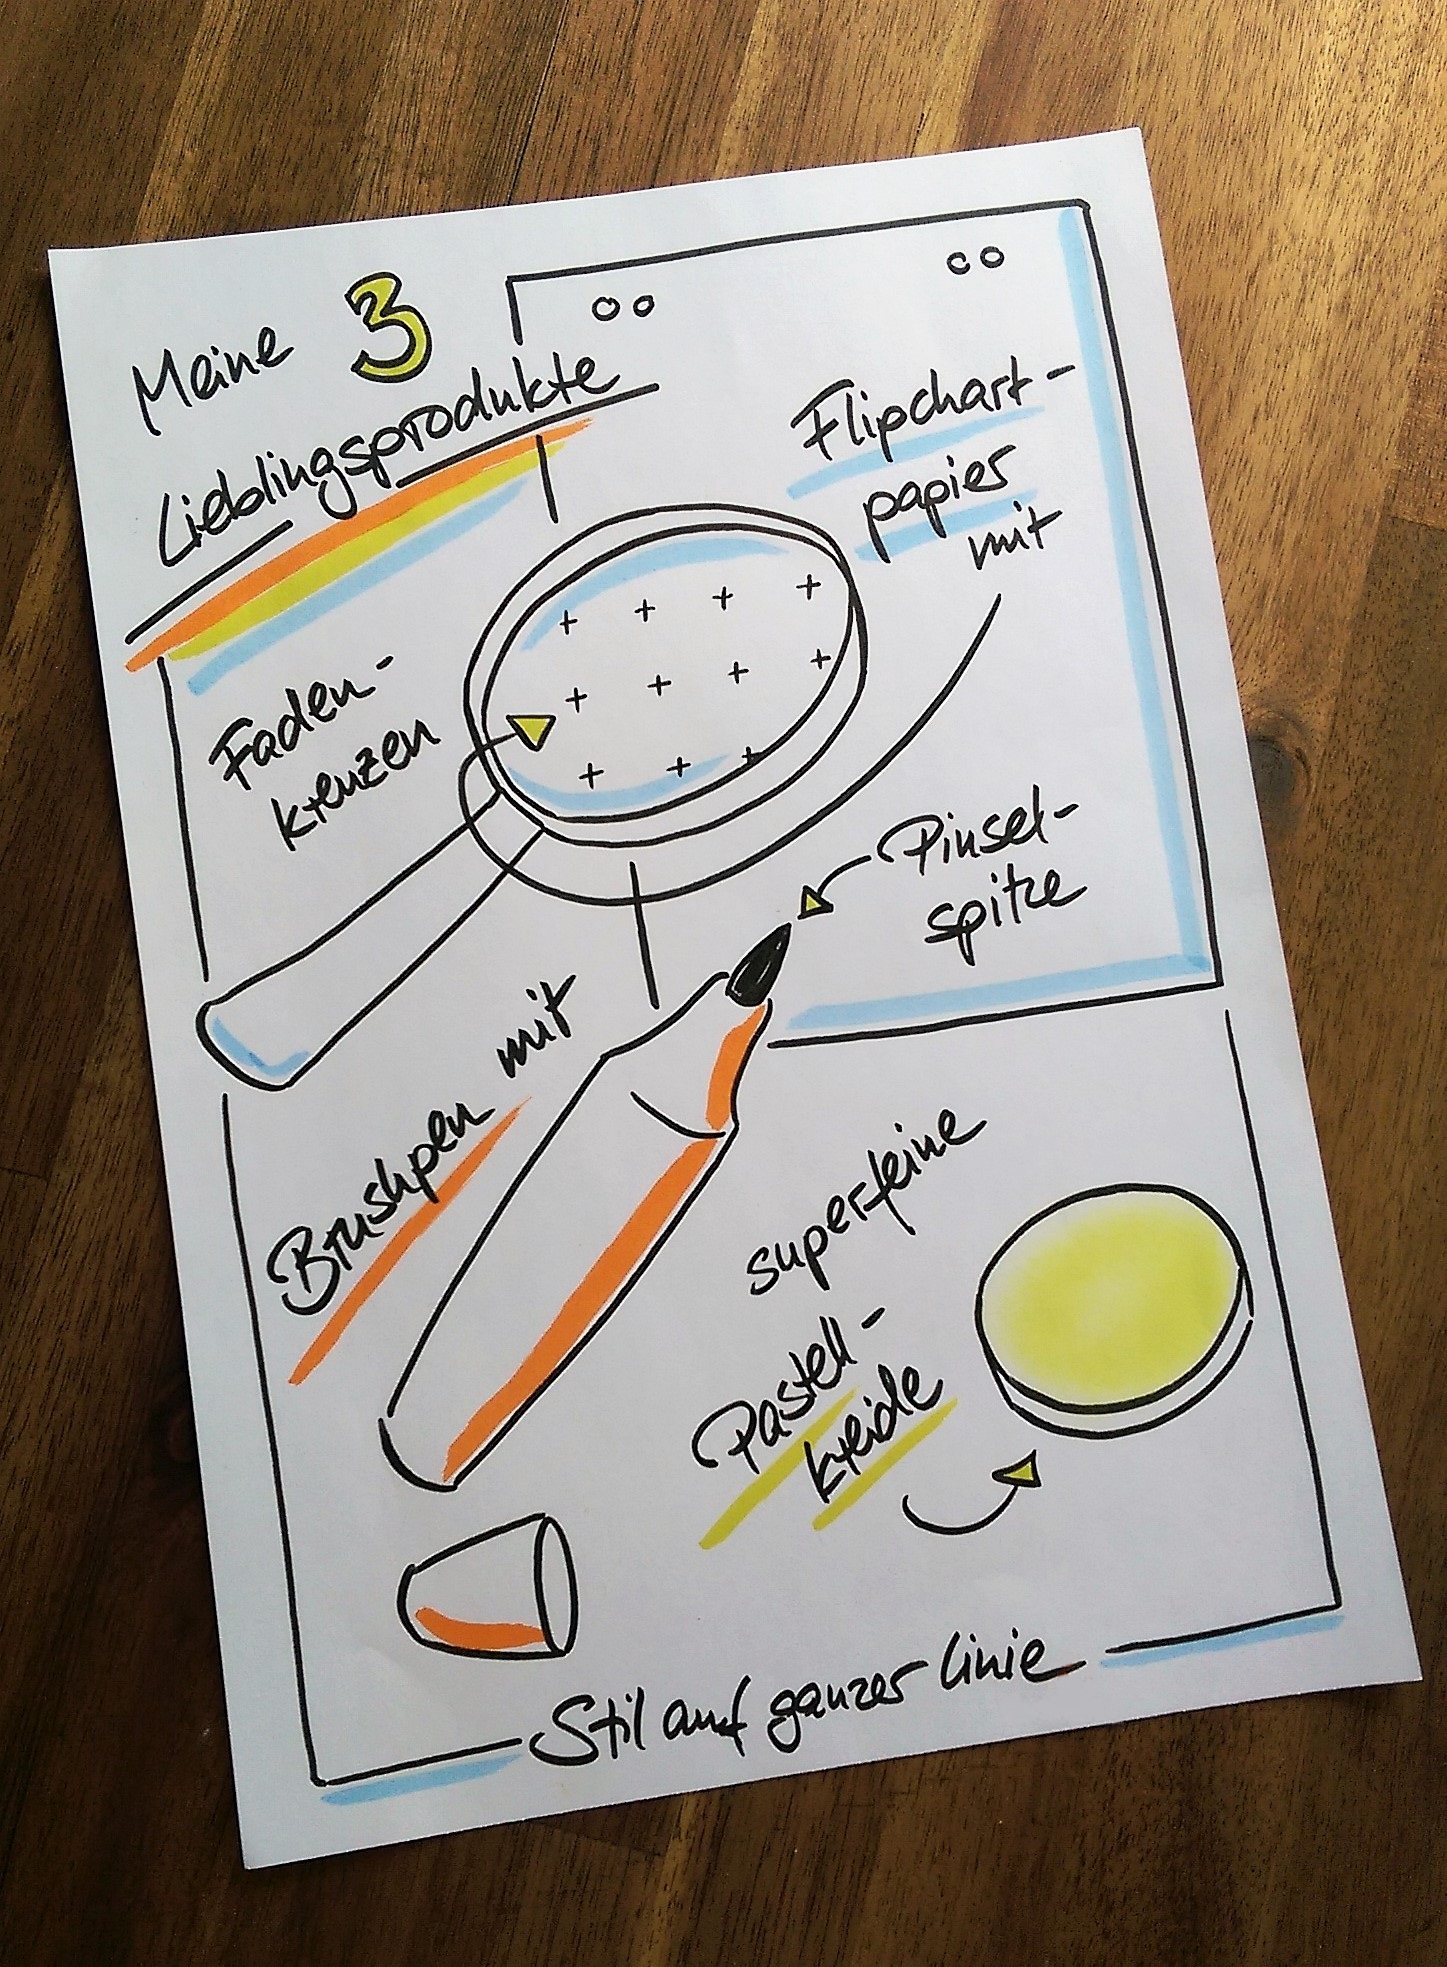 Meine 3
Lieblingsprodukte
Flipchart-
papier
mit
Faden-
kreuzen
Pinsel-
spitze
Brushpen mit
superfeine
Pastell-
kreide
Stil auf ganzer Linie